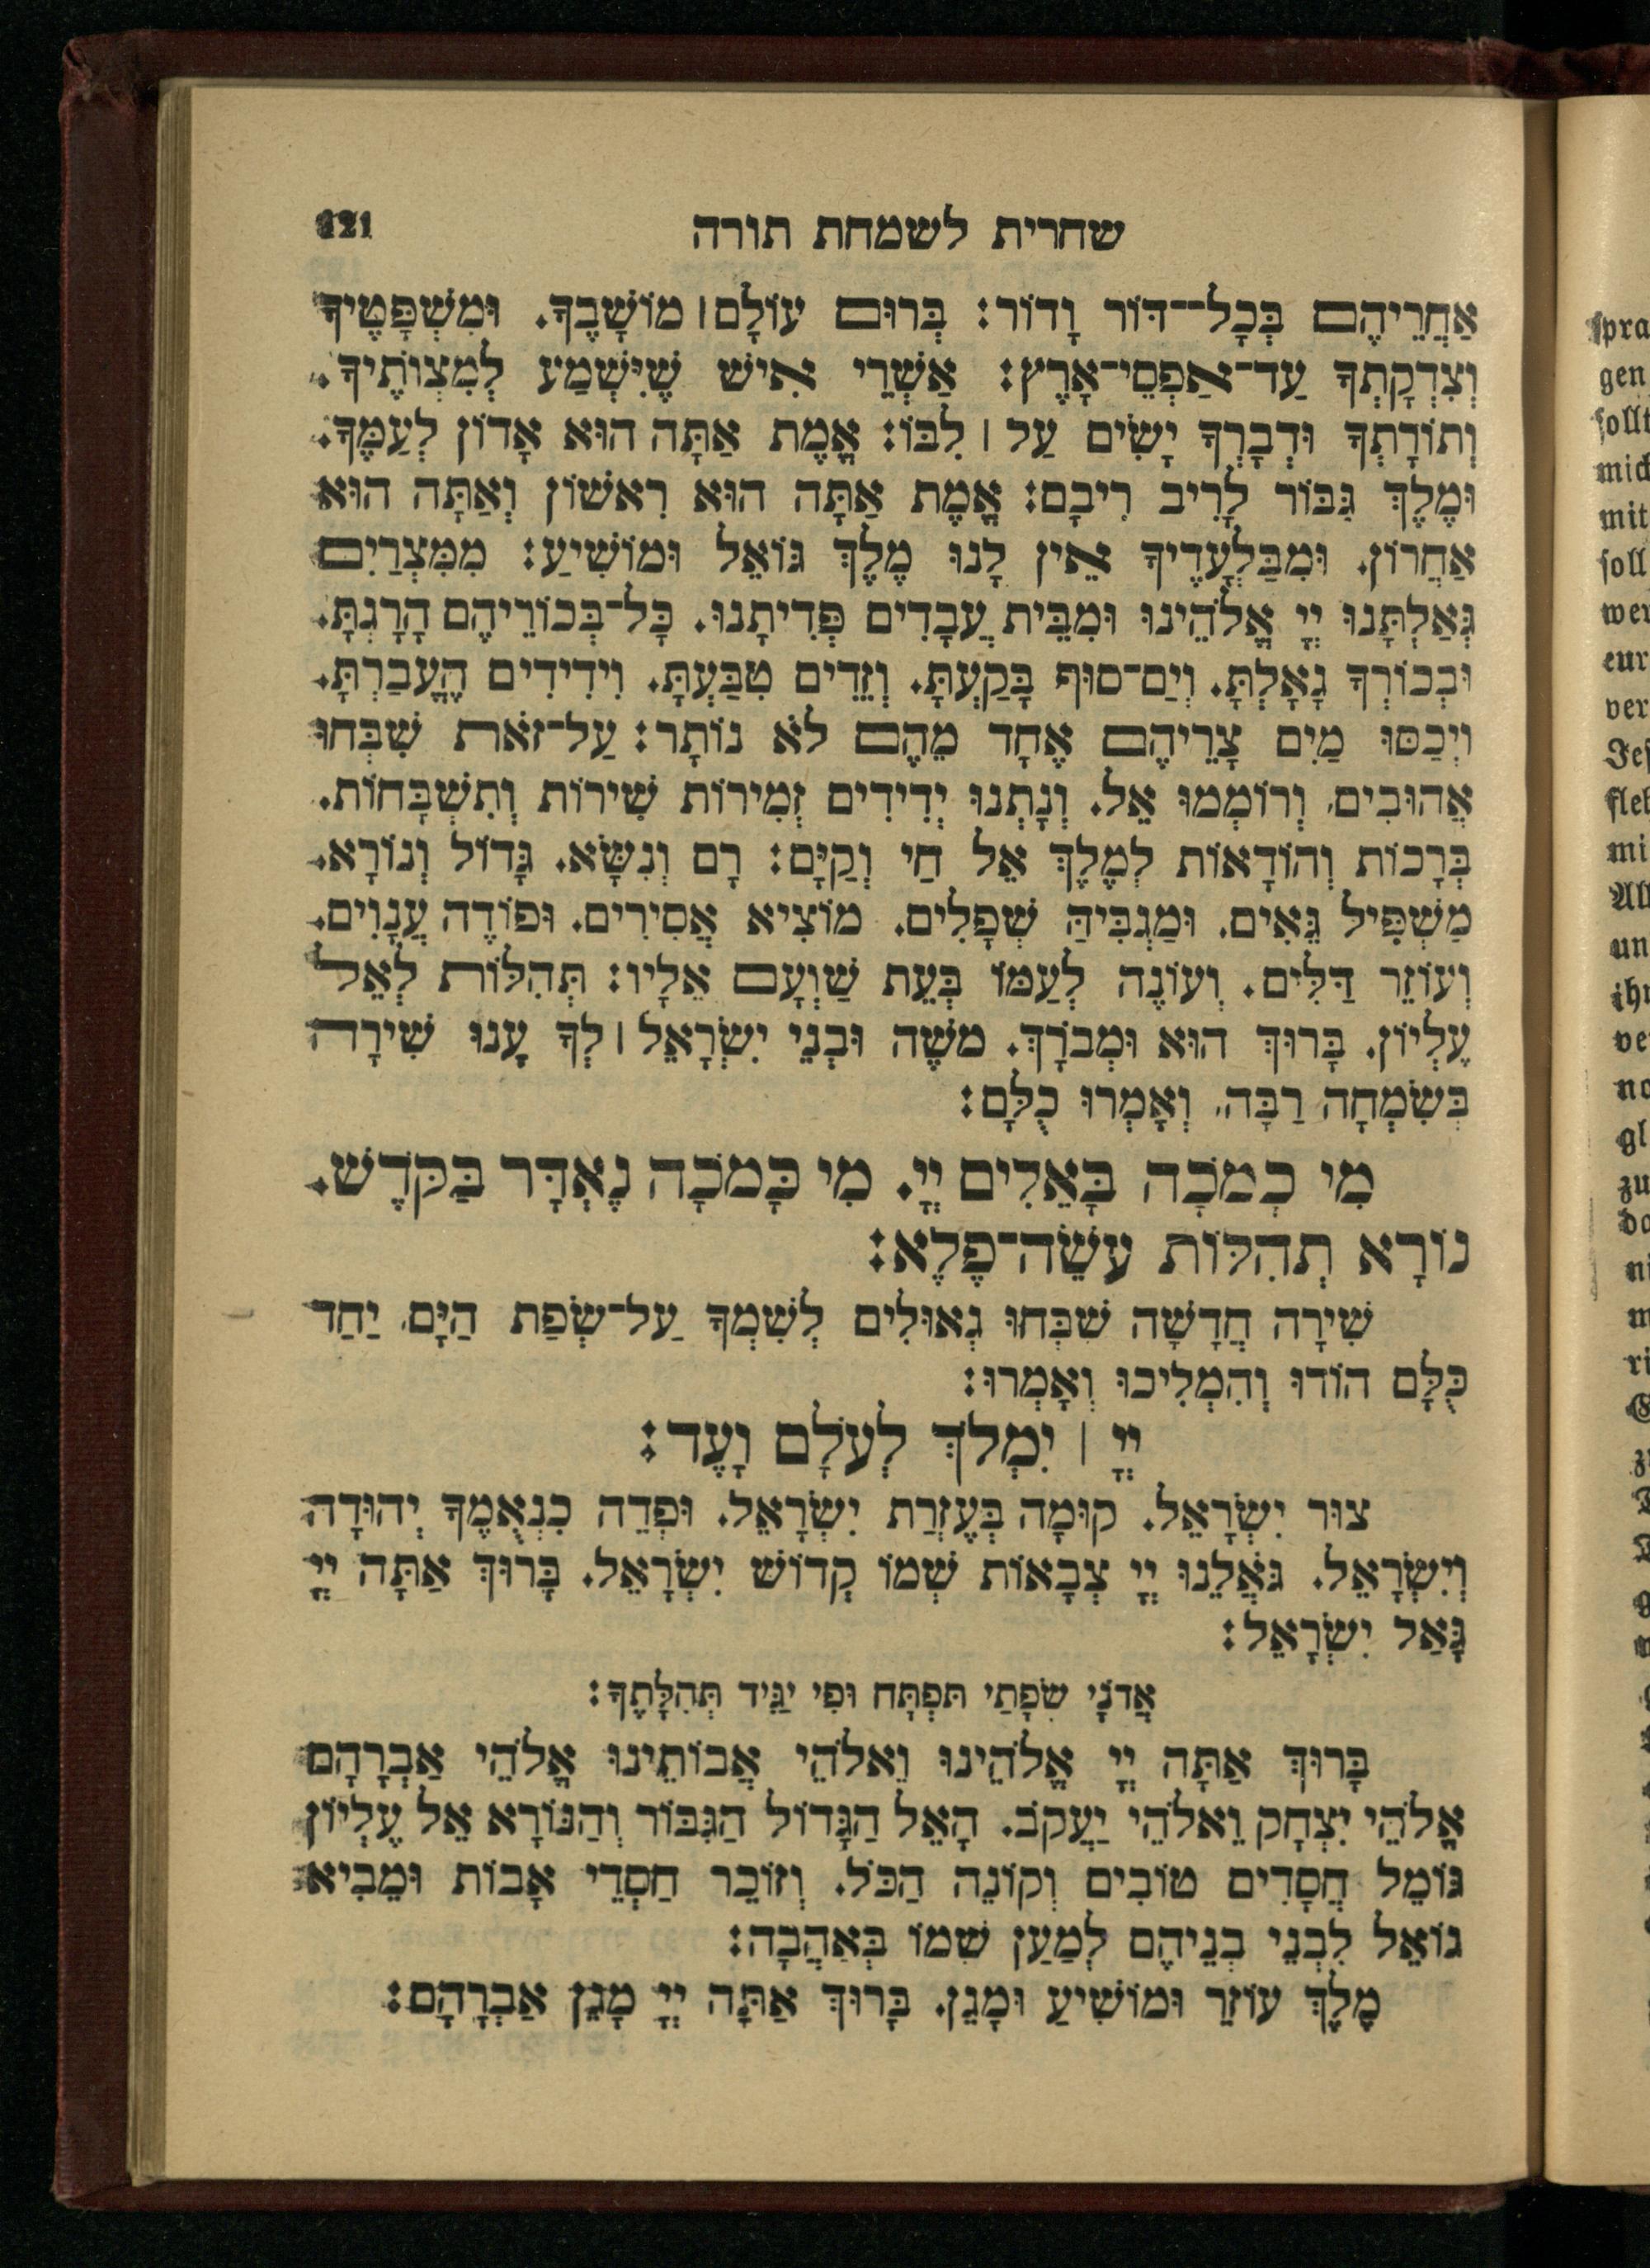 שחרית לשמחת תורה 121
אַחֲרֵיהֶם בְּכָל־דּוֹר וָדוֹר: בְּרוּם עוֹלָם ׀ מוֹשָׁבֶךָ. וּמִשְׁפָּטֶיךָ
וְצִדְקָתְךָ עַד־אַפְסֵי־אָרֶץ: אַשְׁרֵי אִישׁ שֶׁיִּשְׁמַע לְמִצְוֹתֶיךָ.
וְתוֹרָתְךָ וּדְבָרְךָ יָשִׂים עַל ׀ לִבּוֹ: אֱמֶת אַתָּה הוּא אָדוֹן לְעַמֶּךָ.
וּמֶלֶךְ גִּבּוֹר לָרִיב רִיבָם: אֱמֶת אַתָּה הוּא רִאשׁוֹן וְאַתָּה הוּא
אַחֲרוֹן. וּמִבַּלְעָדֶיךָ אֵין לָנוּ מֶלֶךְ גּוֹאֵל וּמוֹשִׁיעַ: מִמִּצְרַיִם
גְּאַלְתָּנוּ יְיָ אֱלֹהֵינוּ וּמִבֵּית עֲבָדִים פְּדִיתָנוּ. כָּל־בְּכוֹרֵיהֶם הָרָגְתָּ.
וּבְכוֹרְךָ גָאָלְתָּ. וְיַם־סוּף בָּקַעְתָּ. וְזֵדִים טִבַּעְתָּ. וִידִידִים הֶעֱבַרְתָּ.
וַיְכַסּוּ מַיִם צָרֵיהֶם אֶחָד מֵהֶם לֹא נוֹתָר: עַל־זֹאת שִׁבְּחוּ
אֲהוּבִים, וְרוֹמְמוּ אֵל. וְנָתְנוּ יְדִידִים זְמִירוֹת שִׁירוֹת וְתִשְׁבָּחוֹת.
בְּרָכוֹת וְהוֹדָאוֹת לְמֶלֶךְ אֵל חַי וְקַיָּם: רָם וְנִשָּׂא. גָּדוֹל וְנוֹרָא.
מַשְׁפִּיל גֵּאִים. וּמַגְבִּיהַּ שְׁפָלִים. מוֹצִיא אֲסִירִים. וּפוֹדֶה עֲנָוִים.
וְעוֹזֵר דַּלִּים. וְעוֹנֶה לְעַמּוֹ בְּעֵת שַׁוְעָם אֵלָיו: תְּהִלּוֹת לְאֵל
עֶלְיוֹן. בָּרוּךְ הוּא וּמְבֹרָךְ. מֹשֶׁה וּבְנֵי יִשְׂרָאֵל ׀ לְךָ עָנוּ שִׁירָה
בְּשִׂמְחָה רַבָּה, וְאָמְרוּ כֻלָּם:
מִי כָמֹכָה בָּאֵלִים יְיָ. מִי כָּמֹכָה נֶאְדָּר בַּקֹּדֶשׁ.
נוֹרָא תְהִלּוֹת עֹשֵׂה־פֶלֶא:
שִׁירָה חֲדָשָׁה שִׁבְּחוּ גְאוּלִים לְשִׁמְךָ עַל־שְׂפַת הַיָּם, יַחַד
כֻּלָּם הוֹדוּ וְהִמְלִיכוּ וְאָמְרוּ:
יְיָ ׀ יִמְלֹךְ לְעֹלָם וָעֶד:
צוּר יִשְׂרָאֵל. קוּמָה בְּעֶזְרַת יִשְׂרָאֵל. וּפְדֵה כִנְאֻמֶךָ יְהוּדָה
וְיִשְׂרָאֵל. גֹּאֲלֵנוּ יְיָ צְבָאוֹת שְׁמוֹ קְדוֹשׁ יִשְׂרָאֵל. בָּרוּךְ אַתָּה יְיָ
גָּאַל יִשְׂרָאֵל:
אֲדֹנָי שְׂפָתַי תִּפְתָּח וּפִי יַגִּיד תְּהִלָּתֶךָ:
בָּרוּךְ אַתָּה יְיָ אֱלֹהֵינוּ וֵאלֹהֵי אֲבוֹתֵינוּ אֱלֹהֵי אַבְרָהָם
אֱלֹהֵי יִצְחָק וֵאלֹהֵי יַעֲקֹב. הָאֵל הַגָּדוֹל הַגִּבּוֹר וְהַנּוֹרָא אֵל עֶלְיוֹן
גּוֹמֵל חֲסָדִים טוֹבִים וְקוֹנֵה הַכֹּל. וְזוֹכֵר חַסְדֵי אָבוֹת וּמֵבִיא
גוֹאֵל לִבְנֵי בְנֵיהֶם לְמַעַן שְׁמוֹ בְּאַהֲבָה:
מֶלֶךְ עוֹזֵר וּמוֹשִׁיעַ וּמָגֵן. בָּרוּךְ אַתָּה יְיָ מָגֵן אַבְרָהָם: